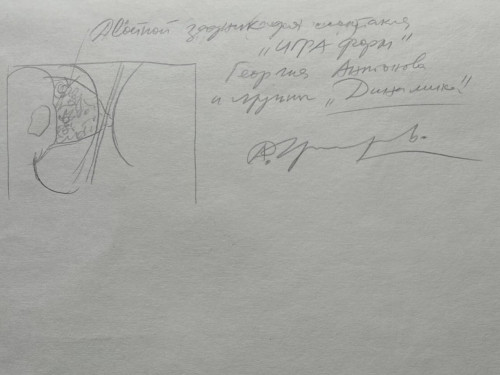 двойной задник для спектакля
"ИГРА форм"
Георгия Антонова
и группы "Динамика"